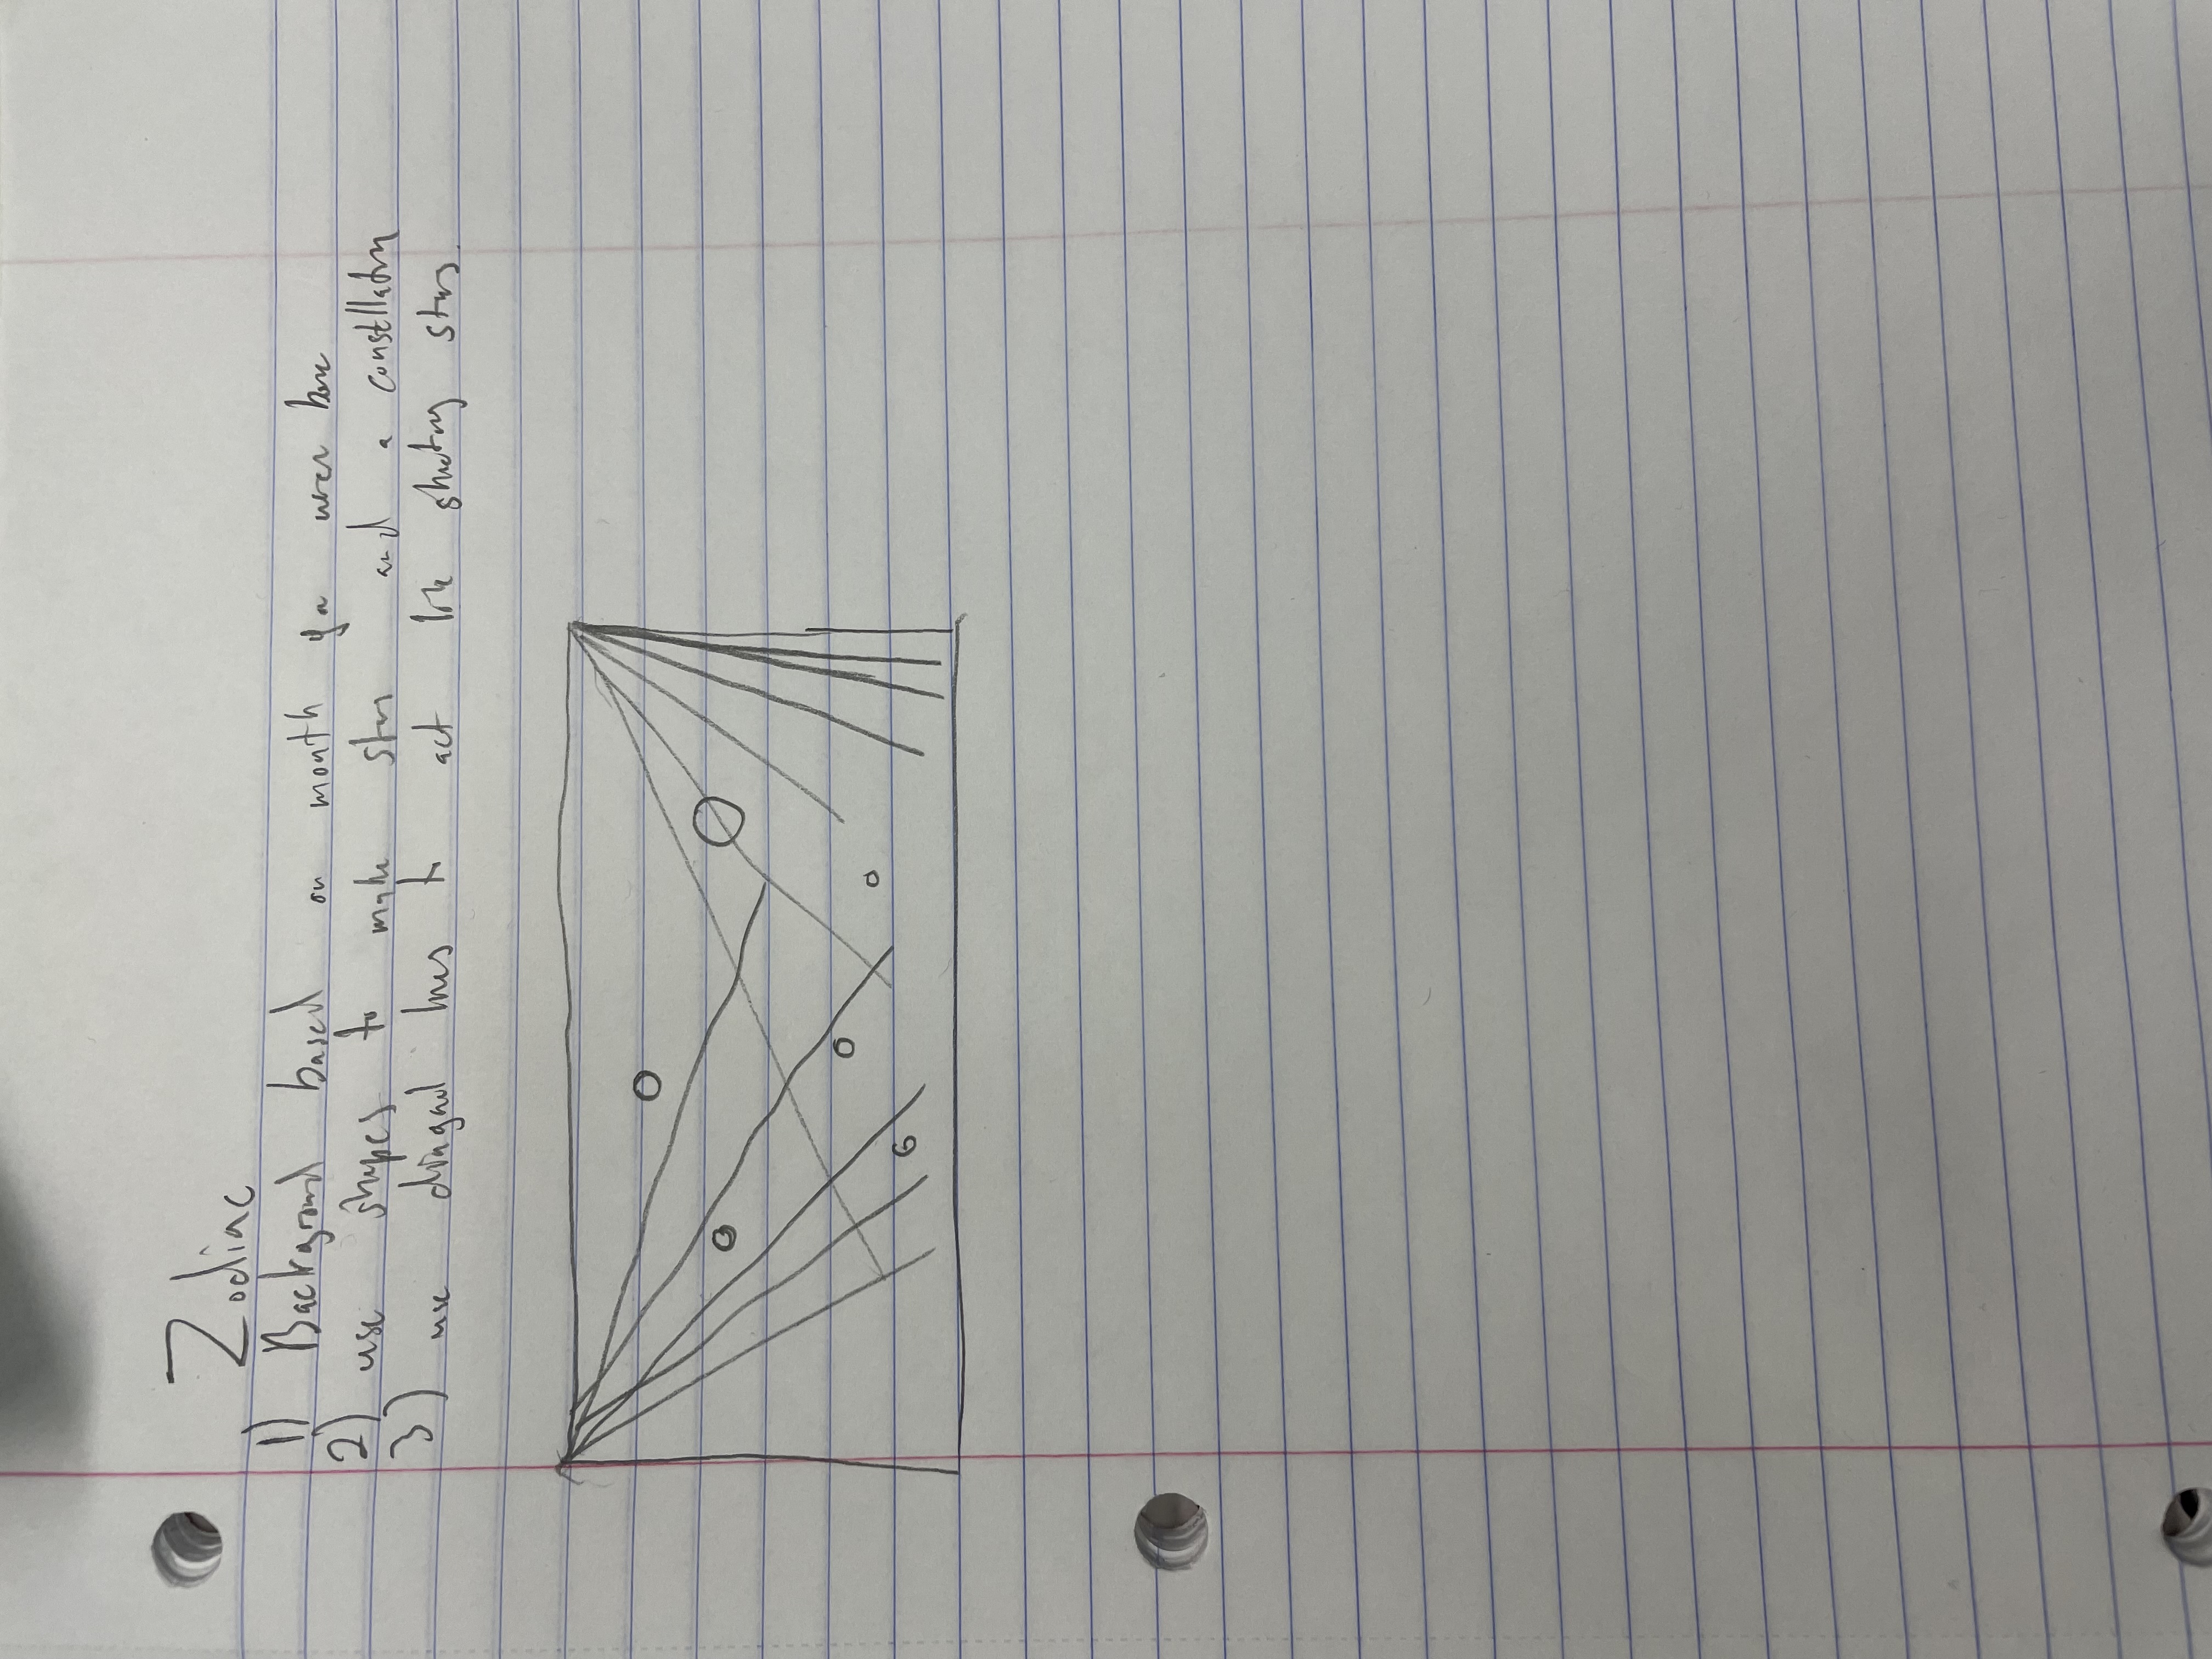 Zodiac
1) Background based on month you were born
2) use shapes to make stars and a constellation
3) use diagonal lines to act like shooting stars.